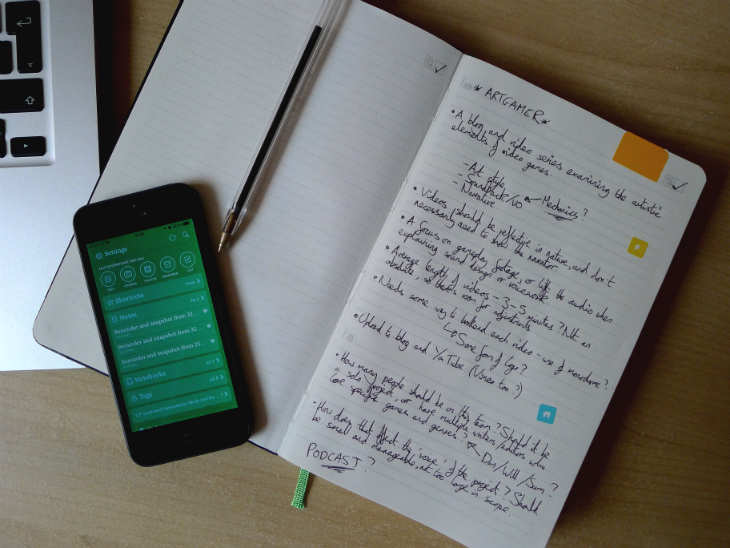 Settings
Shortcuts
Notes
Reminder and snapshot from 32...
Reminder and snapshot from 32...
Reminder and snapshot from 25 ...
Notebooks
Tags
*ARTGAMER*
• A blog and video series examining the artistic
elements of video games.
- Art style
- Soundtrack/VO
- Narrative
Mechanics?
• Videos should be reflective in nature, and don't
necessarily need to show the narrator.
• A focus on gameplay footage, or lift the audio when
explaining sound design or voicework
• Average length of videos - 3-5 minutes? Not an
absolute, so there's room for
• Needs some way to bookend each video - use of
↳ Some form of logo?
• Upload to blog and YouTube (Vimeo too?)
• How many people should be on this team? Should it be
a solo project, or have multiple writers/editors who
love specific games and genres? Dan/Will/Sam?
• How does that affect the 'voice' of the project? Should
be small and manageable, not too large in scope.
PODCAST?